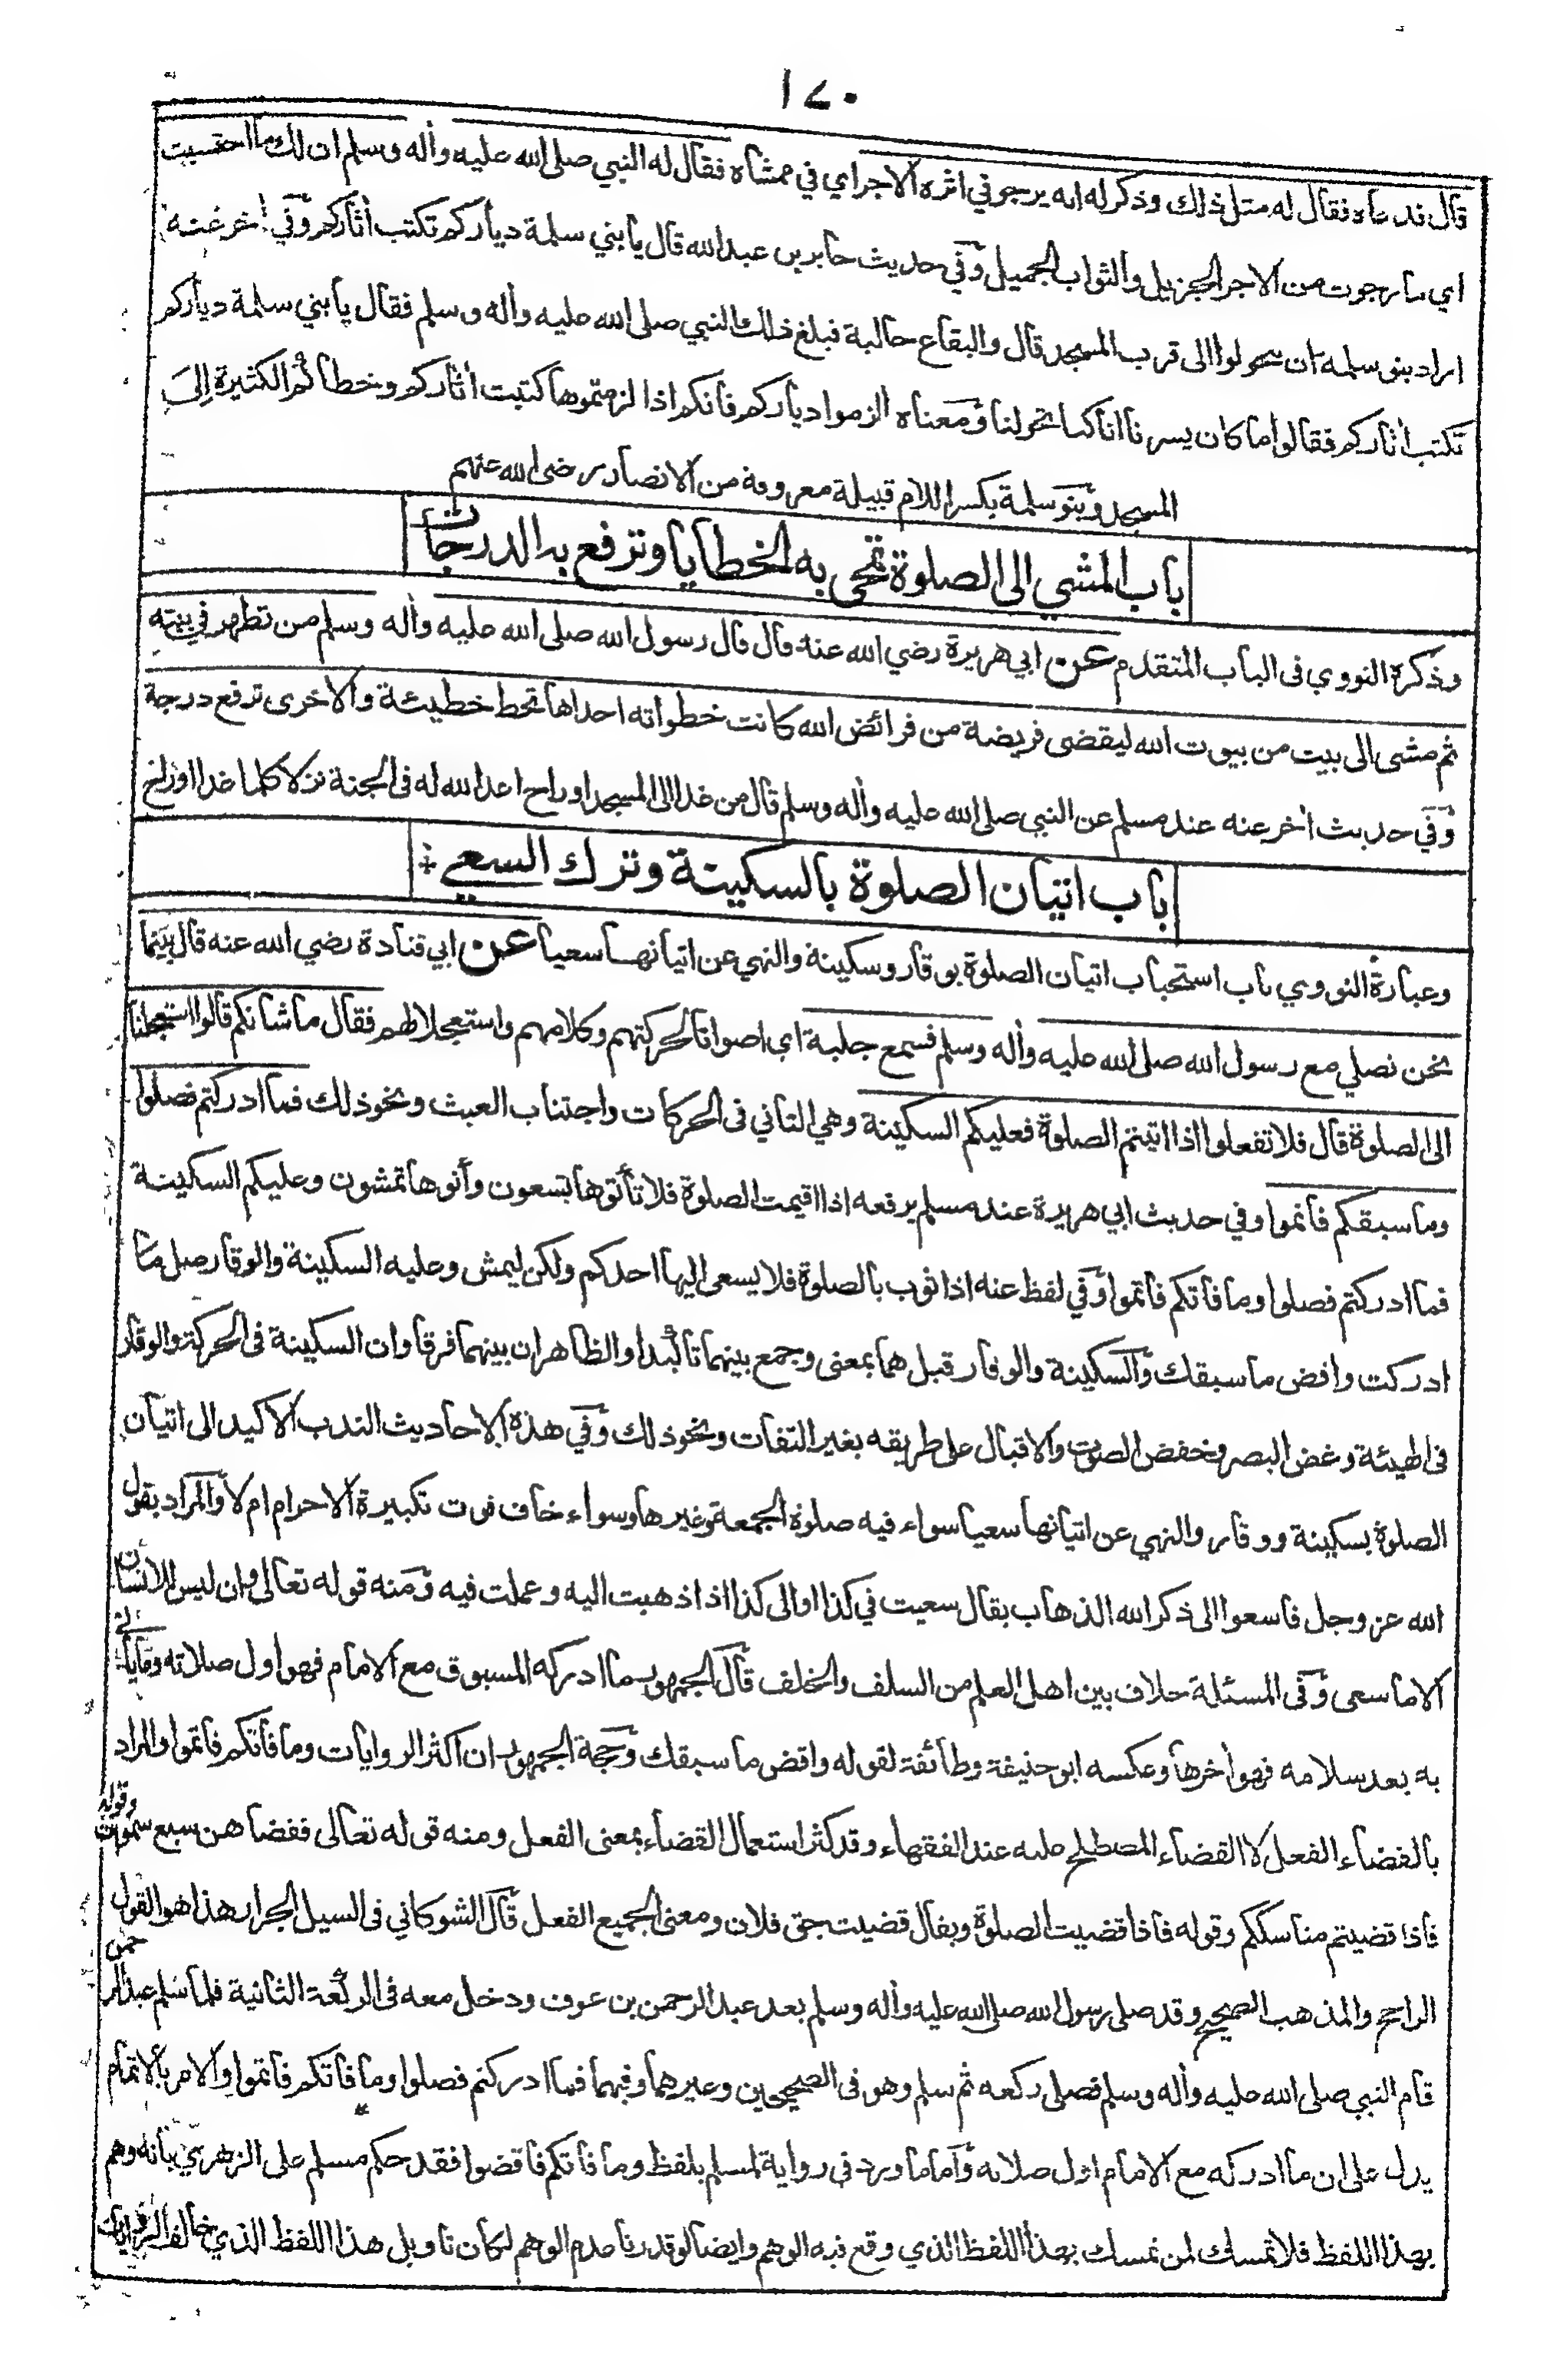 ١٧٠
قال فدعاه فقال له مثل ذلك وذكر له انه يرجو في اثره الاجر اي في ممشاه فقال له النبي صلى الله عليه وأله وسلم ان لك ما احتسبت
اي ما رجوت من الاجر الجزيل والثواب الجميل وفي حديث جابر بن عبد الله قال يا بني سلمة دياركم تكتب أثاركم وفي أخر عنه
اراد بنو سلمه ان يتحولوا الى قرب المسجد قال والبقاع خالية فبلغ ذلك النبي صلى الله عليه وأله وسلم فقال يا بني سلمة دياركم
تكتب أثاركم فقالوا ما كان يسرنا انا كنا تحولنا ومعناه الزموا دياركم فانكم اذا لزمتموها كتبت أثاركم وخطاكم الكثيرة الى
المسجد وبنو سلمة بكسر اللام قبيلة معروفة من الانصار رضى الله عنهم
باب المشي الى الصلوة تمحى به الخطايا وترفع به الدرجات
وذكره النووي فى الباب المتقدم عن ابي هريرة رضي الله عنه قال قال رسول الله صلى الله عليه وأله وسلم من تطهر في بيته
ثم مشى الى بيت من بيوت الله ليقضى فريضة من فرائض الله كانت خطواته احداها تحط خطيئة والاخرى ترفع درجة
وفي حديث أخر عنه عند مسلم عن النبي صلى الله عليه وأله وسلم قال من غدا الى المسجد او راح اعد الله له فى الجنة نزلا كلما غدا او راح
باب اتيان الصلوة بالسكينة وترك السعي
وعبارة النووي باب استحباب اتيان الصلوة بوقار وسكينة والنهي عن اتيانها سعيا عن ابي قتادة رضي الله عنه قال بينما
نحن نصلي مع رسول الله صلى الله عليه وأله وسلم فسمع جلبة اي اصواتا لحركتهم وكلامهم واستعجالهم فقال ما شانكم قالوا استعجلنا
الى الصلوة قال فلا تفعلوا اذا اتيتم الصلوة فعليكم السكينة وهي التاني فى الحركات واجتناب العبث ونحو ذلك فما ادركتم فصلوا
وما سبقكم فاتموا وفي حديث ابي هريرة عند مسلم يرفعه اذا اقيمت الصلوة فلا تأتوها تسعون وأتوها تمشون وعليكم السكينة
فما ادركتم فصلوا وما فاتكم فاتموا وفي لفظ عنه اذا ثوب بالصلوة فلا يسعى اليها احدكم ولكن ليمش وعليه السكينة والوقار صل ما
ادركت واقض ما سبقك والسكينة والوقار قيل هما بمعنى وجمع بينهما تاكيدا والظاهر ان بينهما فرقا وان السكينة فى الحركة والوقار
فى الهيئة وغض البصر وخفض الصوت والاقبال على طريقه بغير التفات ونحو ذلك وفي هذه الاحاديث الندب الاكيد الى اتيان
الصلوة بسكينة ووقار والنهي عن اتيانها سعيا سواء فيه صلوة الجمعة وغيرها وسواء خاف فوت تكبيرة الاحرام ام لا والمراد بقول
الله عز وجل فاسعوا الى ذكر الله الذهاب يقال سعيت في كذا او الى كذا اذا ذهبت اليه وعملت فيه ومنه قوله تعالى وان ليس للانسان
الا ما سعى وفي المسئلة خلاف بين اهل العلم من السلف والخلف قال الجمهور ما ادركه المسبوق مع الامام فهو اول صلاته وما ياتي
به بعد سلامه فهو أخرها وعكسه ابو حنيفة وطائفة لقوله واقض ما سبقك وحجة الجمهور ان اكثر الروايات وما فاتكم فاتموا والمراد
بالقضاء الفعل لا القضاء المصطلح عليه عند الفقهاء وقد كثر استعمال القضاء بمعنى الفعل ومنه قوله تعالى فقضاهن سبع سموات وقوله
فاذا قضيتم مناسككم وقوله فاذا قضيت الصلوة ويقال قضيت حق فلان ومعنى الجميع الفعل قال الشوكاني فى السيل الجرار هذا هو القول
الراجح والمذهب الصحيح وقد صلى رسول الله صلى الله عليه وأله وسلم بعد عبد الرحمن بن عوف ودخل معه فى الركعة الثانية فلما سلم عبد الرحمن
قام النبي صلى الله عليه وأله وسلم فصلى ركعه ثم سلم وهو فى الصحيحين وغيرهما وفيهما فما ادركتم فصلوا وما فاتكم فاتموا والامر بالاتمام
يدل على ان ما ادركه مع الامام اول صلاته وأما ما ورد في رواية لمسلم بلفظ وما فاتكم فاقضوا فقد حكم مسلم على الزهري بانه وهم
بهذا اللفظ فلا تمسك لمن تمسك بهذا اللفظ الذي وقع فيه الوهم وايضا لو قدرنا عدم الوهم لكان تاويل هذا اللفظ الذي خالف الروايات